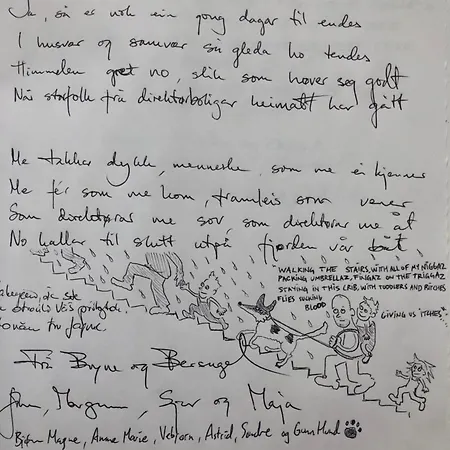 Ja, så er nok ein gong dagar til endes
I husvar og samvær så gleda ho tendes
Himmelen græt no, slik som høver seg godt
Når storfolk frå direktørboligar heimatt har gått
Me takkar dykk, menneske, som me ei kjenner
Me fér som me kom, framleis som vener
Som direktørar me sov, som direktørar me åt
No kallar til slutt utpå fjorden vår båt
WALKING THE STAIRS, WITH ALL OF MY NIGGAZ
PACKING UMBRELLAZ, FINGAZ ON THE TRIGGAZ
STAYING IN THIS CRIB, WITH TODDLERS AND BITCHES
FLIES SUCKING BLOOD
GIVING US ITCHES
Frå Bryne og
Margunn, og Maja
Bjørn Magne, Anne Marie, Vebjørn, Astrid, Sondre og Gunn Hund